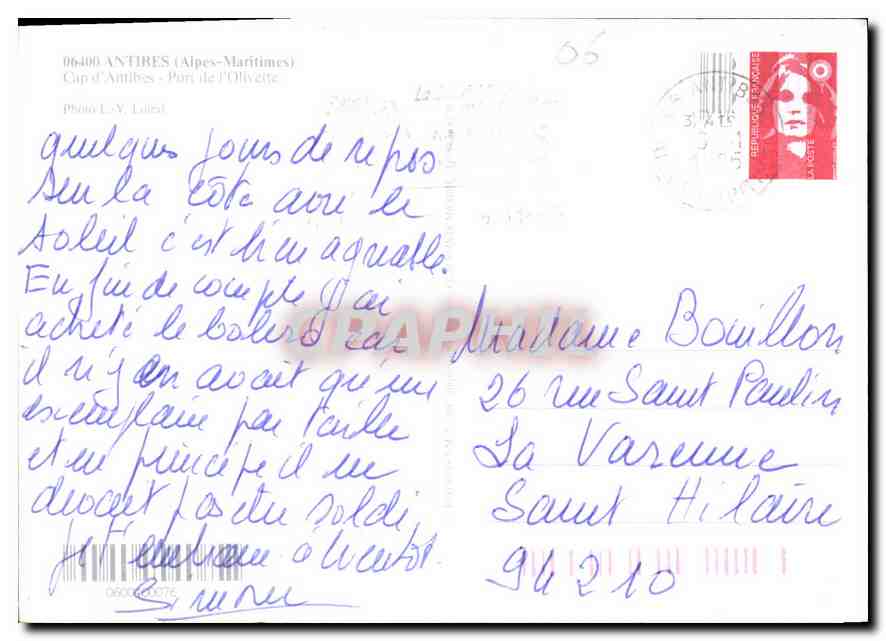 06400 ANTIBES (Alpes-Maritimes)
Cap d'Antibes - Port de l'Olivette
Photo L.-V. Loisel
05
RÉPUBLIQUE FRANÇAISE
LA POSTE
quelques jours de repos
sur la côte avec le
soleil c'est bien agréable.
En fin de compte j'ai
acheté le car
il n'y en avait qu'un
exemplaire par taille
et en principe il ne
devait pas être soldé,
je t'embrasse à bientôt.
Simone
Madame Bouillon
26 rue Saint Paulin
La Varenne
Saint Hilaire
94210
0600400076
GRAPHIK